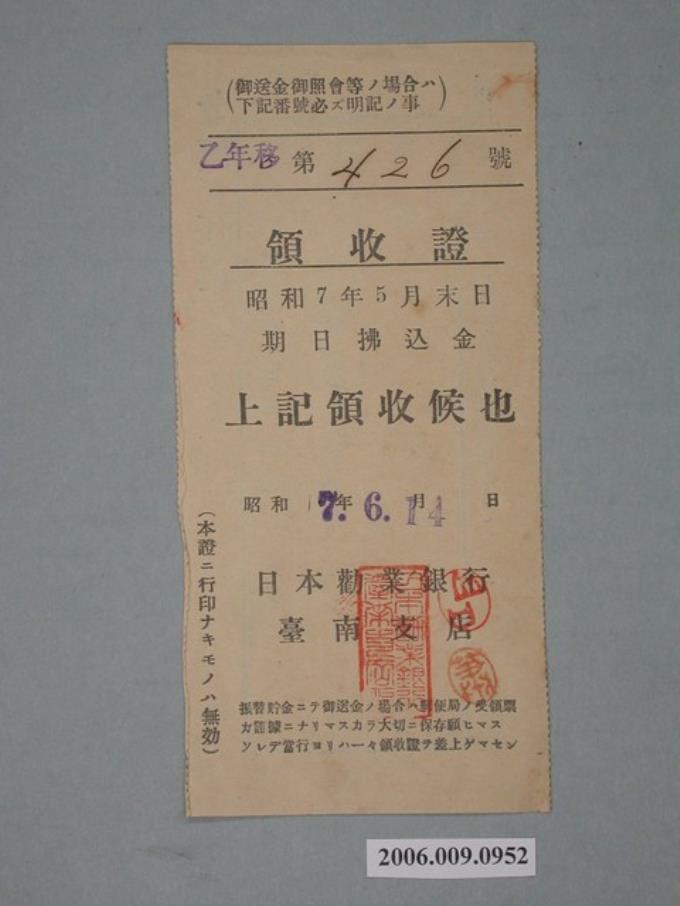 (御送金御照會等ノ場合ハ
下記番號必ズ明記ノ事)
乙年移 第 426 號
領收證
昭和7年5月末日
期日拂込金
上記領收候也
昭和 7.年 6.月 14 日
日本勸業銀行
臺南支店
(本證ニ行印ナキモノハ無効)
振替貯金ニテ御送金ノ場合ハ郵便局ノ受領票
ガ證據ニナリマスカラ大切ニ保存願ヒマス
ソレデ當行ヨリハ一々領收證ヲ差上ゲマセン
2006.009.0952